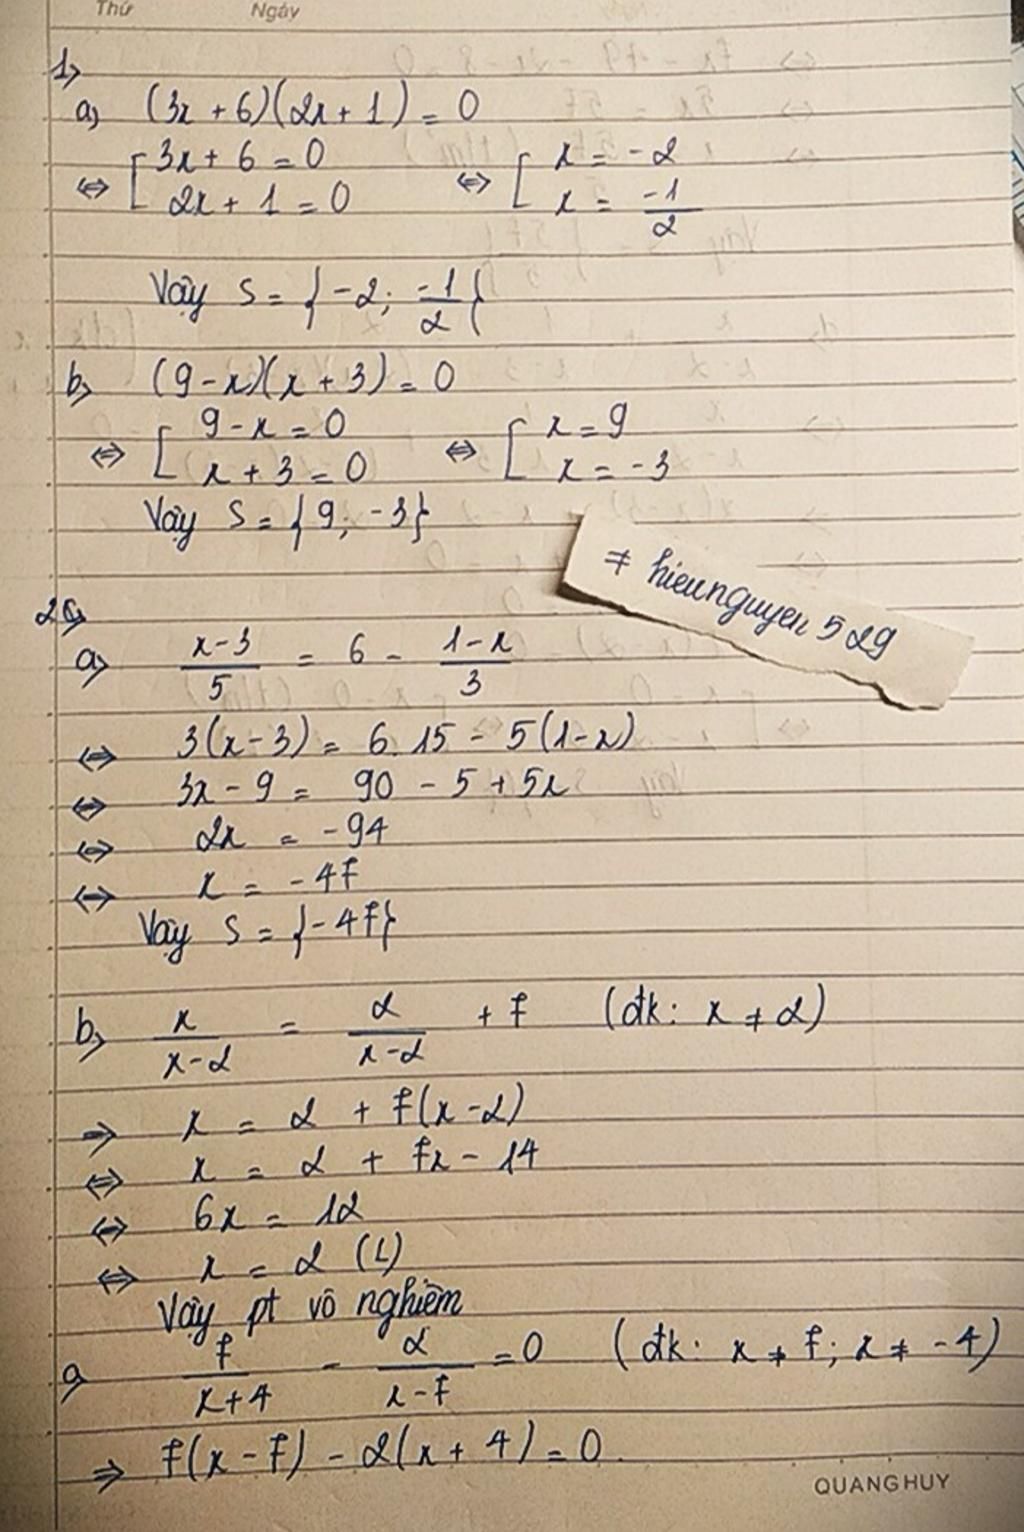 Thứ Ngày
1,
a, (3x + 6)(2x + 1) = 0
⇔ [ 3x + 6 = 0 ⇔ [ x = -2
2x + 1 = 0 x = -1/2
Vậy S = {-2; -1/2}
b, (9 - x)(x + 3) = 0
⇔ [ 9 - x = 0 ⇔ [ x = 9
x + 3 = 0 x = -3
Vậy S = {9; -3}
≠ hieunguyen 529
2,
a, (x-3)/5 = 6 - (1-x)/3
⇔ 3(x - 3) = 6.15 - 5(1-x)
⇔ 3x - 9 = 90 - 5 + 5x
⇔ 2x = -94
⇔ x = -47
Vậy S = {-47}
b, x/(x-2) = 2/(x-2) + 7 (đk: x ≠ 2)
⇒ x = 2 + 7(x-2)
⇔ x = 2 + 7x - 14
⇔ 6x = 12
⇔ x = 2 (L)
Vậy pt vô nghiệm
c, 7/(x+4) - 2/(x-7) = 0 (đk: x ≠ 7; x ≠ -4)
⇒ 7(x - 7) - 2(x + 4) = 0
QUANG HUY